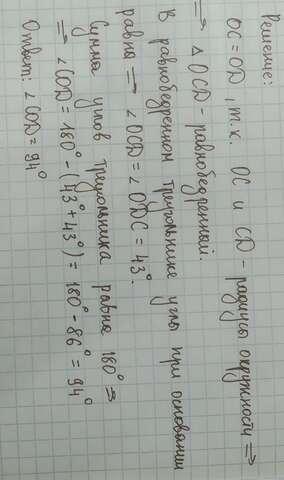 Решение:
OC = OD, т.к. OC и CD - радиусы окружности ⇒
⇒ △ OCD - равнобедренный.
В равнобедренном треугольнике углы при основании
равны ⇒ ∠OCD = ∠ODC = 43°.
Сумма углов треугольника равна 180° ⇒
⇒ ∠COD = 180° - (43° + 43°) = 180° - 86° = 94°
Ответ: ∠COD = 94°